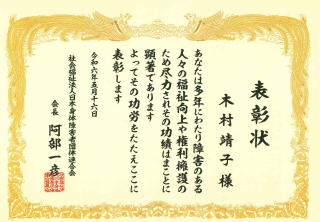 表彰状
木村靖子様
あなたは多年にわたり障害のある
人々の福祉向上や権利擁護の
ため尽力されその功績はまことに
顕著であります
よってその功労をたたえここに
表彰します
令和六年五月十六日
社会福祉法人日本身体障害者団体連合会
会長 阿部一彦